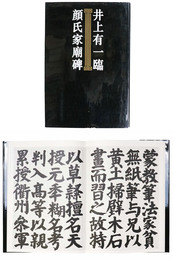 井上有一臨
顏氏家廟碑
蒙教筆法家貧
無紙筆與兄以
黄土掃壁木石
畫而習之故特
以草隸擅名天
授元年糊名考
判入高等以親
累授衢州叅軍